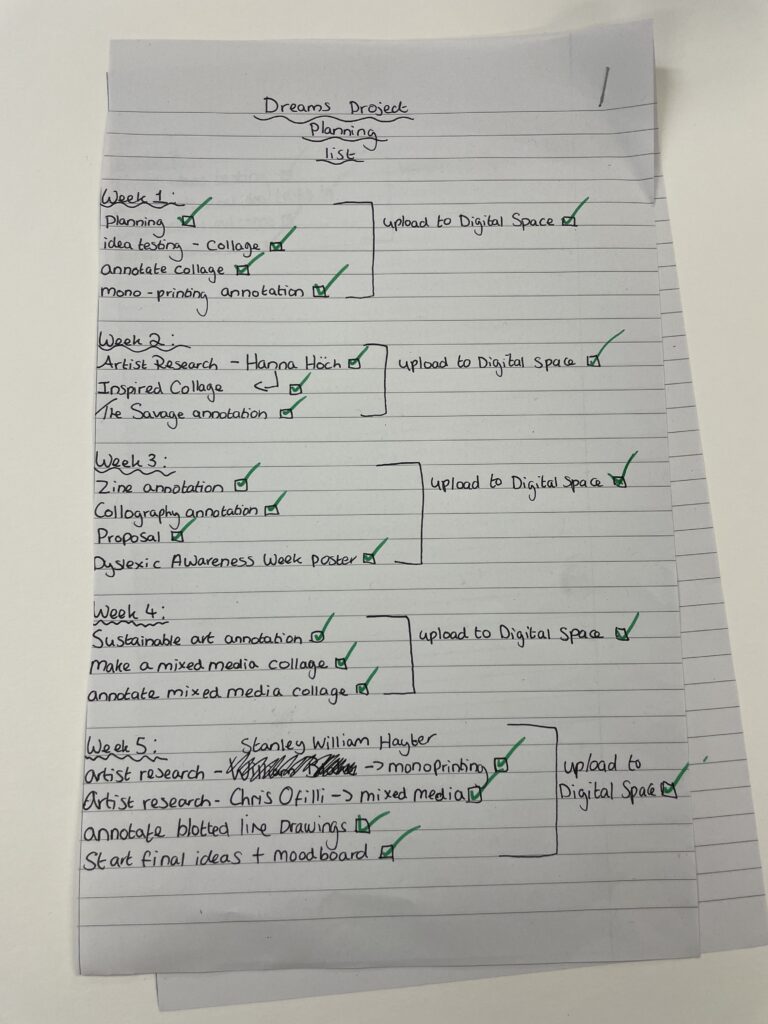 Dreams Project
Planning
list
Week 1:
Planning
idea testing - Collage
annotate collage
mono-printing annotation
upload to Digital Space
Week 2:
Artist Research - Hanna Höch
Inspired Collage
The Savage annotation
upload to Digital Space
Week 3:
Zine annotation
Collography annotation
Proposal
Dyslexic Awareness Week poster
upload to Digital Space
Week 4:
Sustainable art annotation
make a mixed media collage
annotate mixed media collage
upload to Digital Space
Week 5:
Stanley William Hayter
artist research - -> monoprinting
Artist research - Chris Ofilli -> mixed media
annotate blotted line Drawings
Start final ideas + moodboard
upload to
Digital Space